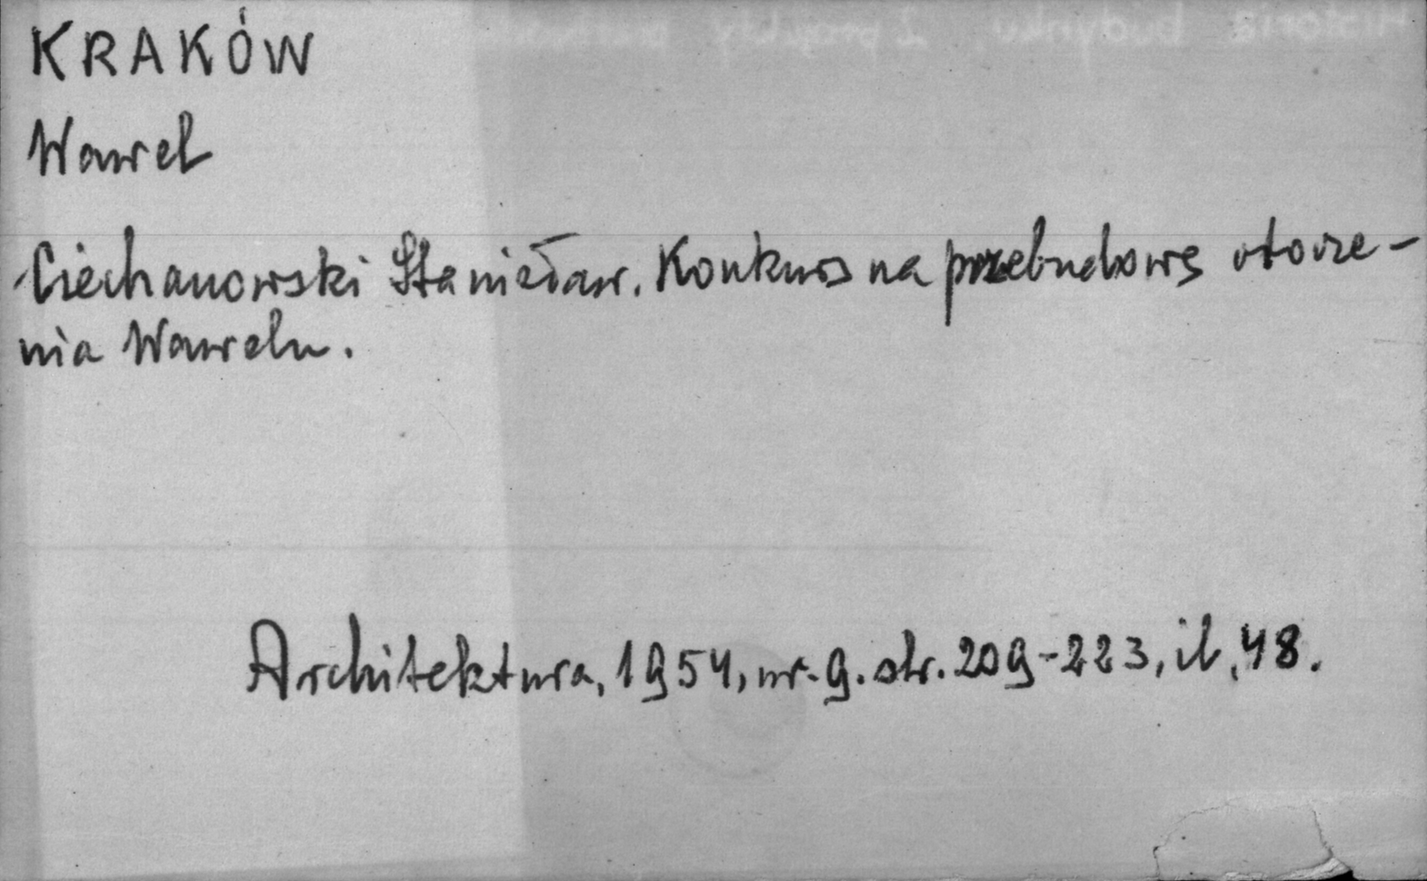 KRAKÓW
Wawel
Ciechanowski Stanisław. Konkurs na przebudowę otocze-
nia Wawelu.
Architektura, 1954, nr. 9. str. 209-223, il, 48.